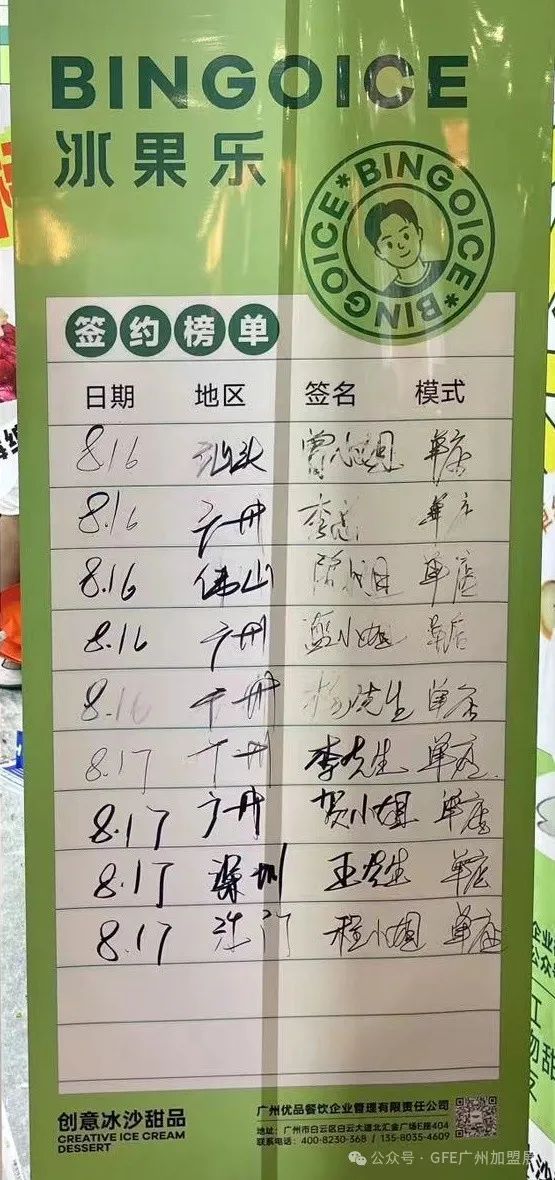 BINGOICE
冰果乐
BINGOICE*BINGOICE*
签约榜单
日期 地区 签名 模式
8.16 汕头 曾小姐 单店
8.16 广州 李总 单店
8.16 佛山 陈小姐 单店
8.16 广州 蓝小姐 单店
8.16 广州 杨先生 单店
8.17 广州 李先生 单店
8.17 广州 贺小姐 单店
8.17 深圳 王先生 单店
8.17 江门 程小姐 单店
创意冰沙甜品
CREATIVE ICE CREAM
DESSERT
广州优品餐饮企业管理有限责任公司
地址：广州市白云区白云大道北汇金广场E座404
联系电话：400-8230-368 / 135-8035-4609
公众号 · GFE广州加盟展